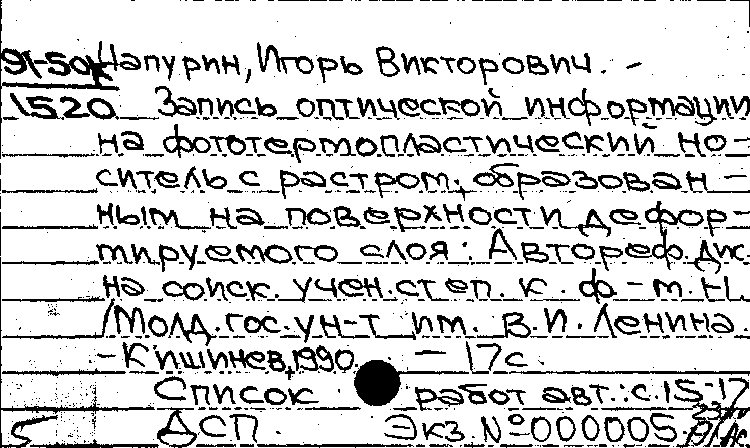 91-50к Чапурин, Игорь Викторович. -
1520 Запись оптической информации
на фототермопластический но-
ситель с растром, образован-
ным на поверхности дефор-
мируемого слоя: Автореф. дис.
на соиск. учен. степ. к. ф.-м. н.
/Молд. гос. ун-т им. В. И. Ленина.
- Кишинев, 1990. - 17 с.
Список работ авт.: с. 15-17
5 ДСП. Экз. № 000005.